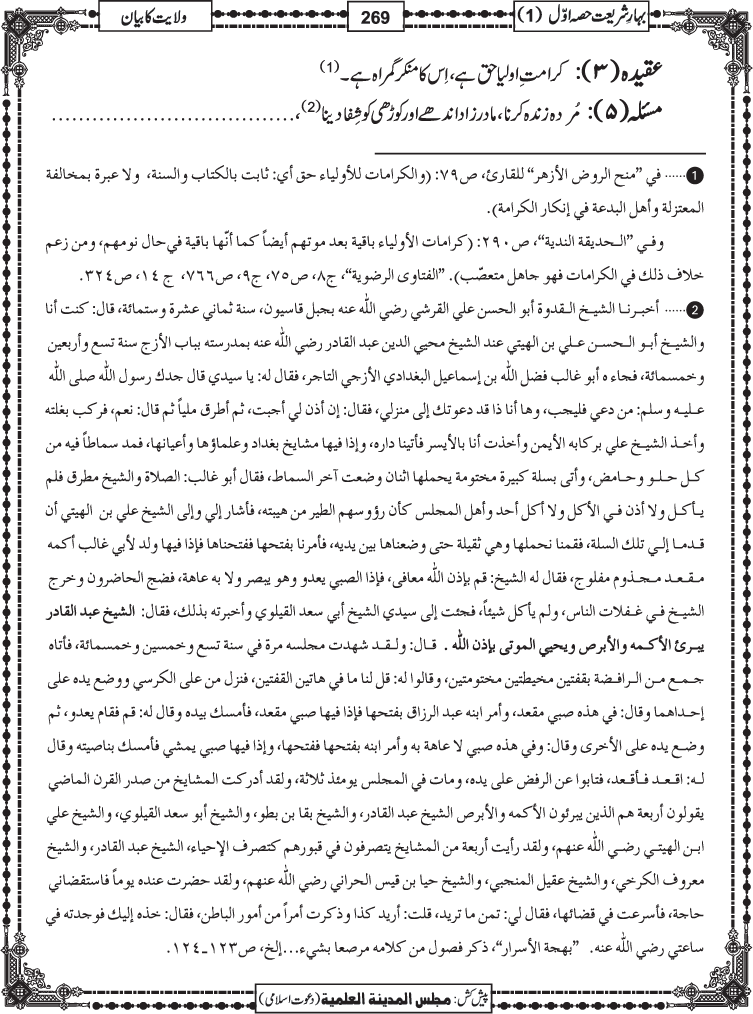 بہارِ شریعت حصہ اوّل (1)
269
ولایت کا بیان
عقیدہ (۳): کرامتِ اولیا حق ہے، اِس کا منکر گمراہ ہے۔ (1)
مسئلہ (۵): مُردہ زندہ کرنا، مادر زاد اندھے اور کوڑھی کو شِفا دینا(2)، ..................................
1...... في ”منح الروض الأزهر“ للقارئ، ص٧٩: (والكرامات للأولياء حق أي: ثابت بالكتاب والسنة، ولا عبرة بمخالفة
المعتزلة وأهل البدعة في إنكار الكرامة).
وفي ”الحديقة الندية“، ص٢٩٠: (كرامات الأولياء باقية بعد موتهم أيضاً كما أنّها باقية في حال نومهم، ومن زعم
خلاف ذلك في الكرامات فهو جاهل متعصّب). ”الفتاوى الرضوية“، ج٨، ص٧٥، ج٩، ص٧٦٦، ج ١٤، ص٣٢٤.
2...... أخبرنا الشيخ القدوة أبو الحسن علي القرشي رضي الله عنه بجبل قاسيون، سنة ثماني عشرة وستمائة، قال: كنت أنا
والشيخ أبو الحسن علي بن الهيتي عند الشيخ محيي الدين عبد القادر رضي الله عنه بمدرسته بباب الأزج سنة تسع وأربعين
وخمسمائة، فجاء ه أبو غالب فضل الله بن إسماعيل البغدادي الأزجي التاجر، فقال له: يا سيدي قال جدك رسول الله صلى الله
عليه وسلم: من دعي فليجب، وها أنا ذا قد دعوتك إلى منزلي، فقال: إن أذن لي أجبت، ثم أطرق ملياً ثم قال: نعم، فركب بغلته
وأخذ الشيخ علي بركابه الأيمن وأخذت أنا بالأيسر فأتينا داره، وإذا فيها مشايخ بغداد وعلماؤها وأعيانها، فمد سماطاً فيه من
كل حلو وحامض، وأتى بسلة كبيرة مختومة يحملها اثنان وضعت آخر السماط، فقال أبو غالب: الصلاة والشيخ مطرق فلم
يأكل ولا أذن في الأكل ولا أكل أحد وأهل المجلس كأن رؤوسهم الطير من هيبته، فأشار إلي وإلى الشيخ علي بن الهيتي أن
قدما إلي تلك السلة، فقمنا نحملها وهي ثقيلة حتى وضعناها بين يديه، فأمرنا بفتحها ففتحناها فإذا فيها ولد لأبي غالب أكمه
مقعد مجذوم مفلوج، فقال له الشيخ: قم بإذن الله معافى، فإذا الصبي يعدو وهو يبصر ولا به عاهة، فضج الحاضرون وخرج
الشيخ في غفلات الناس، ولم يأكل شيئاً، فجئت إلى سيدي الشيخ أبي سعد القيلوي وأخبرته بذلك، فقال: الشيخ عبد القادر
يبرئ الأكمه والأبرص ويحيي الموتى بإذن الله . قال: ولقد شهدت مجلسه مرة في سنة تسع وخمسين وخمسمائة، فأتاه
جمع من الرافضة بقفتين مخيطتين مختومتين، وقالوا له: قل لنا ما في هاتين القفتين، فنزل من على الكرسي ووضع يده على
إحداهما وقال: في هذه صبي مقعد، وأمر ابنه عبد الرزاق بفتحها فإذا فيها صبي مقعد، فأمسك بيده وقال له: قم فقام يعدو، ثم
وضع يده على الأخرى وقال: وفي هذه صبي لا عاهة به وأمر ابنه بفتحها ففتحها، وإذا فيها صبي يمشي فأمسك بناصيته وقال
له: اقعد فأقعد، فتابوا عن الرفض على يده، ومات في المجلس يومئذ ثلاثة، ولقد أدركت المشايخ من صدر القرن الماضي
يقولون أربعة هم الذين يبرئون الأكمه والأبرص الشيخ عبد القادر، والشيخ بقا بن بطو، والشيخ أبو سعد القيلوي، والشيخ علي
ابن الهيتي رضي الله عنهم، ولقد رأيت أربعة من المشايخ يتصرفون في قبورهم كتصرف الإحياء، الشيخ عبد القادر، والشيخ
معروف الكرخي، والشيخ عقيل المنجبي، والشيخ حيا بن قيس الحراني رضي الله عنهم، ولقد حضرت عنده يوماً فاستقضاني
حاجة، فأسرعت في قضائها، فقال لي: تمن ما تريد، قلت: أريد كذا وذكرت أمراً من أمور الباطن، فقال: خذه إليك فوجدته في
ساعتي رضي الله عنه. ”بهجة الأسرار“، ذكر فصول من كلامه مرصعا بشيء...إلخ، ص١٢٣ـ١٢٤.
پیش کش: مجلس المدينة العلمية (دعوت اسلامی)